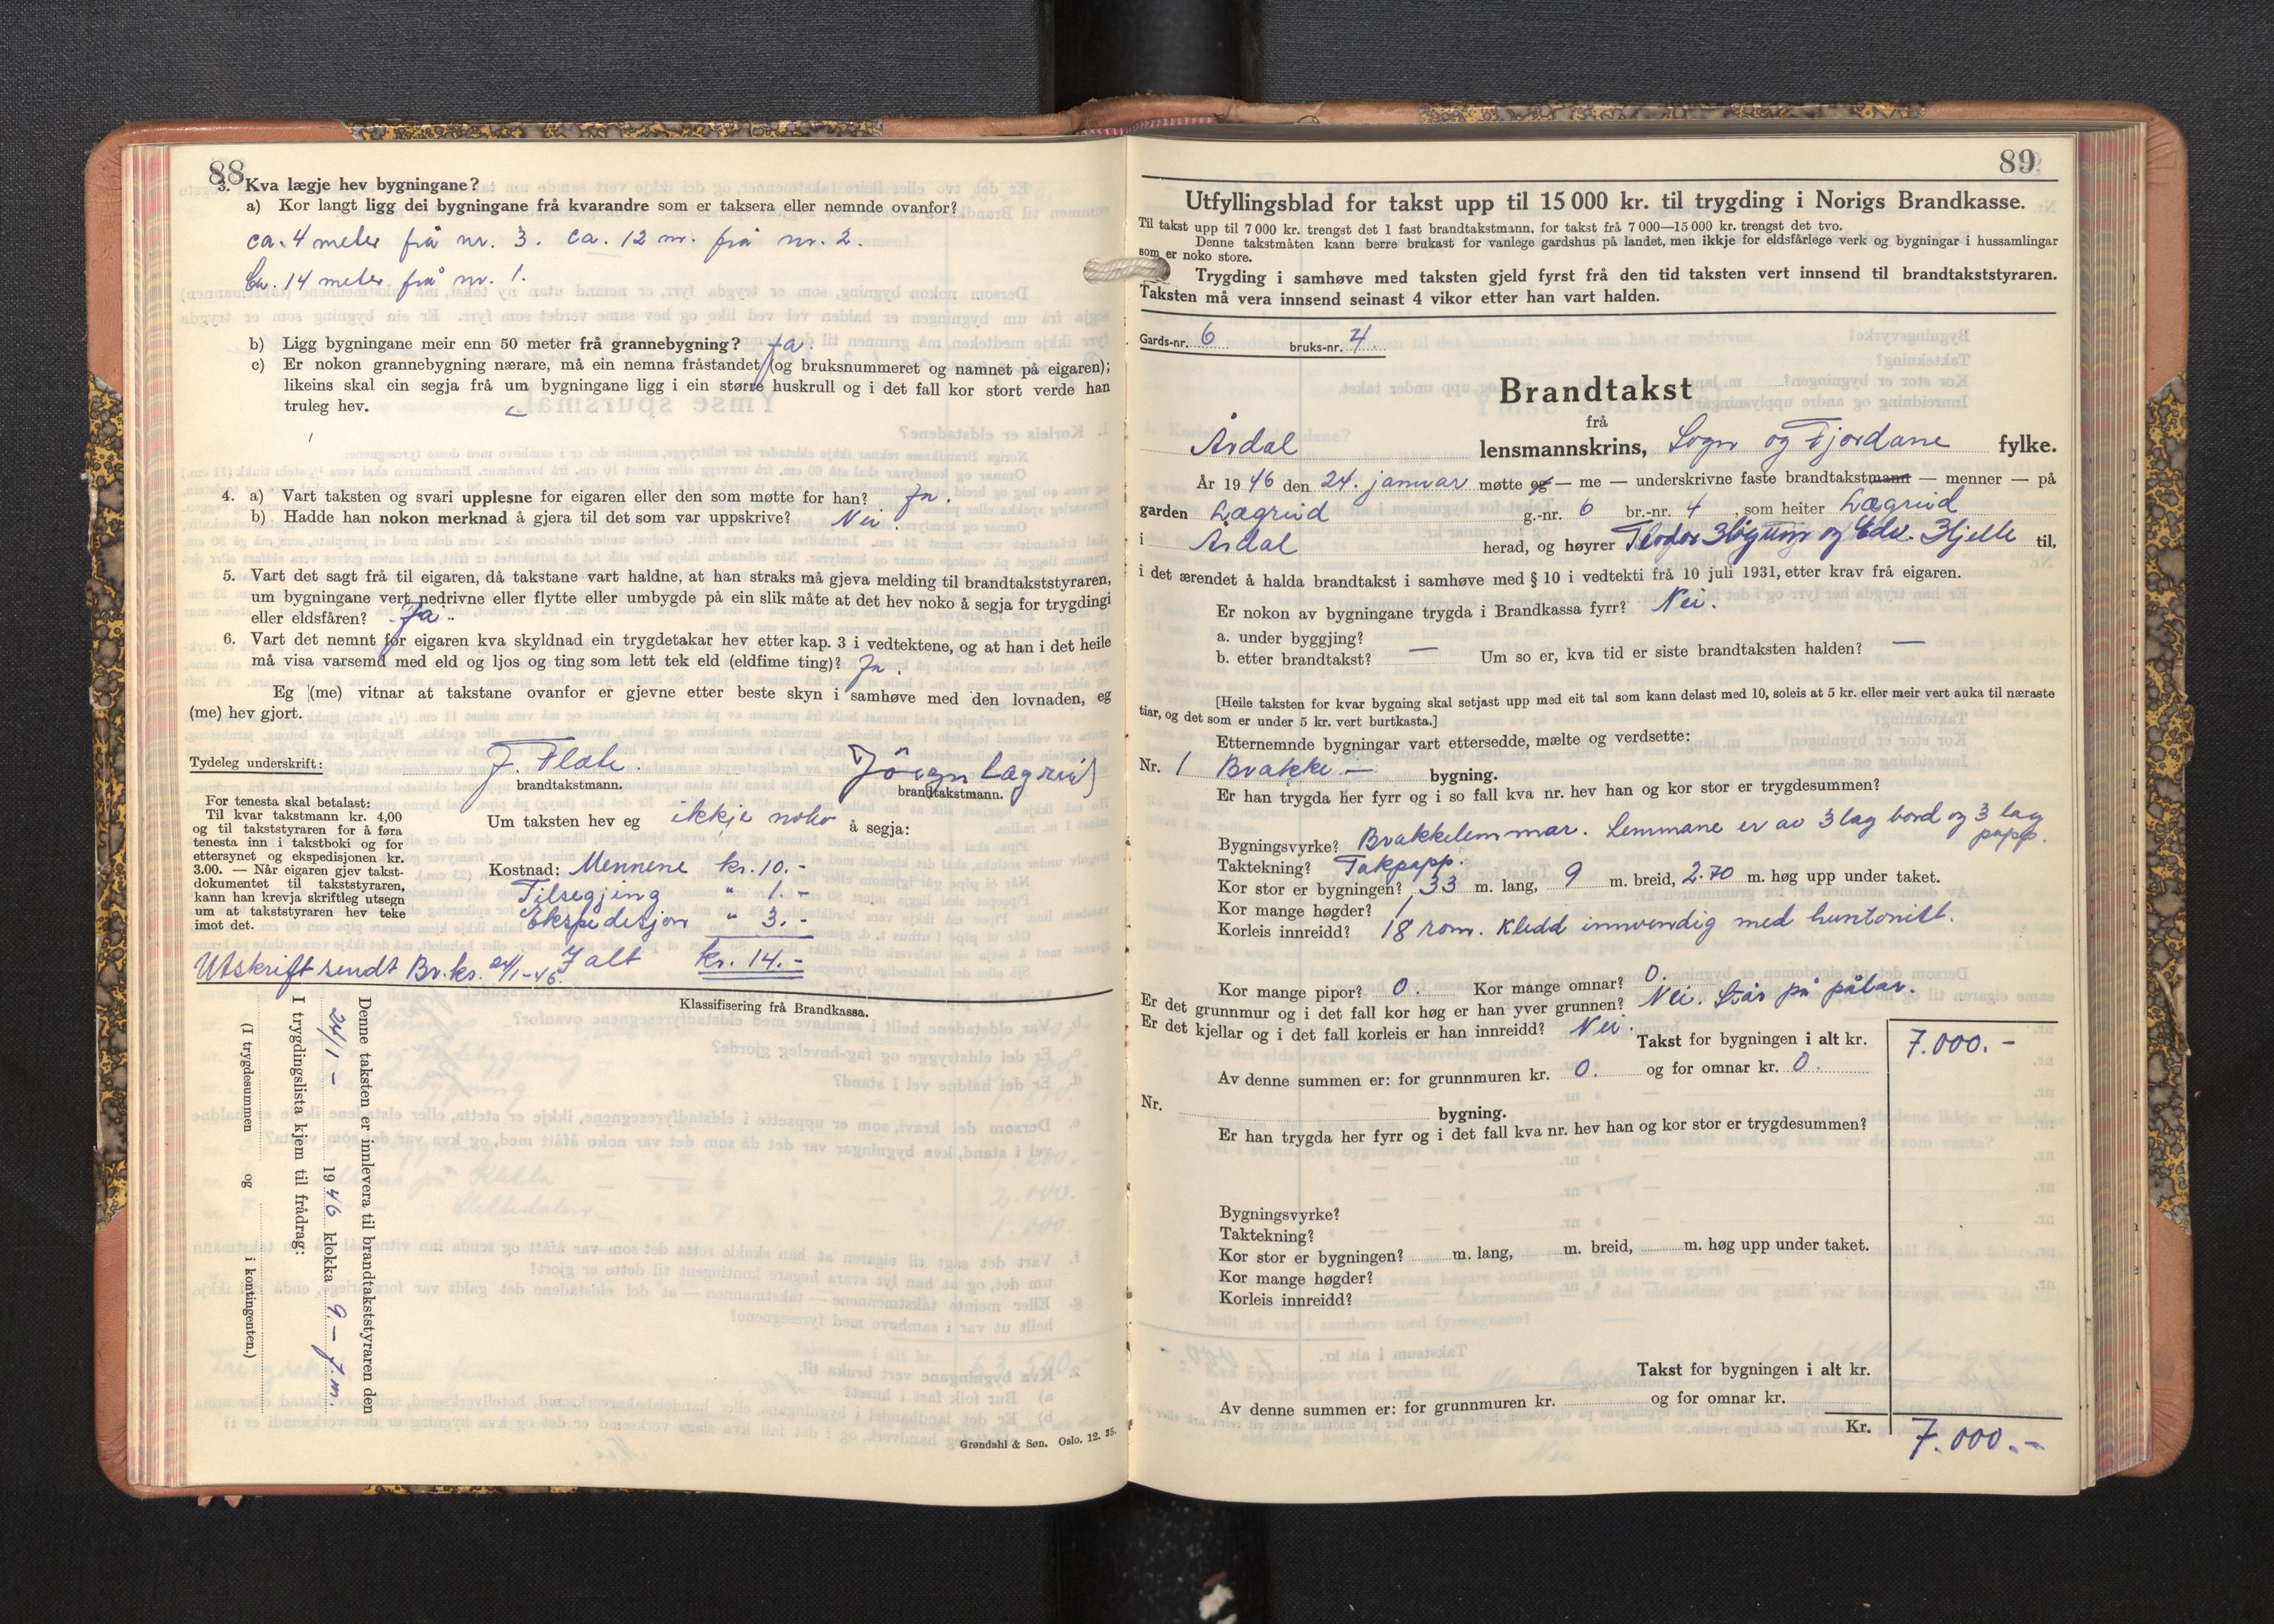 88
3. Kva lægje hev bygningane?
a) Kor langt ligg dei bygningane frå kvarandre som er taksera eller nemnde ovanfor?
ca. 4 meter frå nr. 3. ca. 12 m. frå nr. 2.
Ca. 14 meter frå nr. 1.
b) Ligg bygningane meir enn 50 meter frå grannebygning? Ja.
c) Er nokon grannebygning nærare, må ein nemna fråstandet (og bruksnummeret og namnet på eigaren);
likeins skal ein segja frå um bygningane ligg i ein større huskrull og i det fall kor stort verde han
truleg hev.
4. a) Vart taksten og svari upplesne for eigaren eller den som møtte for han? Ja.
b) Hadde han nokon merknad å gjera til det som var uppskrive? Nei.
5. Vart det sagt frå til eigaren, då takstane vart haldne, at han straks må gjeva melding til brandtakststyraren,
um bygningane vert nedrivne eller flytte eller umbygde på ein slik måte at det hev noko å segja for trygdingi
eller eldsfåren? Ja.
6. Vart det nemnt for eigaren kva skyldnad ein trygdetakar hev etter kap. 3 i vedtektene, og at han i det heile
må visa varsemd med eld og ljos og ting som lett tek eld (eldfime ting)? Ja.
Eg (me) vitnar at takstane ovanfor er gjevne etter beste skyn i samhøve med den lovnaden, eg
(me) hev gjort.
Tydeleg underskrift: J. Flate. Jörgn Lægreid
brandtakstmann. brandtakstmann.
For tenesta skal betalast:
Til kvar takstmann kr. 4,00
og til takststyraren for å føra
tenesta inn i takstboki og for
ettersynet og ekspedisjonen kr.
3.00. — Når eigaren gjev takst-
dokumentet til takststyraren,
kann han krevja skriftleg utsegn
um at takststyraren hev teke
imot det.
Um taksten hev eg ikkje noko å segja:
Kostnad: Mennene kr. 10.-
Tilsegjing " 1.-
Ekspedisjon " 3.-
I alt kr. 14.-
Utskrift sendt Br.ks. 24/1-46.
Klassifisering frå Brandkassa.
Denne taksten er innlevera til brandtakststyraren den
24/1 - 1946 klokka 9.- f.m.
I trygdingslista kjem til frådrag:
(I trygdesummen og i kontingenten.)
Grøndahl & Søn. Oslo. 12. 35.
89
Utfyllingsblad for takst upp til 15 000 kr. til trygding i Norigs Brandkasse.
Til takst upp til 7 000 kr. trengst det 1 fast brandtakstmann, for takst frå 7 000—15 000 kr. trengst det tvo.
Denne takstmåten kann berre brukast for vanlege gardshus på landet, men ikkje for eldsfårlege verk og bygningar i hussamlingar
som er noko store.
Trygding i samhøve med taksten gjeld fyrst frå den tid taksten vert innsend til brandtakststyraren.
Taksten må vera innsend seinast 4 vikor etter han vart halden.
Gards-nr. 6 bruks-nr. 4.
Brandtakst
frå
Årdal lensmannskrins, Sogn og Fjordane fylke.
År 1946 den 24. januar møtte eg — me — underskrivne faste brandtakstmann — menner — på
garden Lægreid g.-nr. 6 br.-nr. 4, som heiter Lægreid
i Årdal herad, og høyrer Edv. Hjelle til,
i det ærendet å halda brandtakst i samhøve med § 10 i vedtekti frå 10 juli 1931, etter krav frå eigaren.
Er nokon av bygningane trygda i Brandkassa fyrr? Nei.
a. under byggjing?
b. etter brandtakst? — Um so er, kva tid er siste brandtaksten halden? —
[Heile taksten for kvar bygning skal setjast upp med eit tal som kann delast med 10, soleis at 5 kr. eller meir vert auka til næraste
tiar, og det som er under 5 kr. vert burtkasta.]
Etternemnde bygningar vart ettersedde, mælte og verdsette:
Nr. 1 Brakke - bygning.
Er han trygda her fyrr og i so fall kva nr. hev han og kor stor er trygdesummen?
Bygningsvyrke? Brakkelemmar. Lemmane er av 3 lag bord og 3 lag papp.
Taktekning? Takpapp.
Kor stor er bygningen? 33 m. lang, 9 m. breid, 2.70 m. høg upp under taket.
Kor mange høgder? 1
Korleis innreidd? 18 rom. Kledd innvendig med huntonitt.
Kor mange pipor? 0. Kor mange omnar? 0.
Er det grunnmur og i det fall kor høg er han yver grunnen? Nei. Står på pålar.
Er det kjellar og i det fall korleis er han innreidd? Nei.
Takst for bygningen i alt kr. 7.000.-
Av denne summen er: for grunnmuren kr. 0. og for omnar kr. 0.
Nr. bygning.
Er han trygda her fyrr og i det fall kva nr. hev han og kor stor er trygdesummen?
Bygningsvyrke?
Taktekning?
Kor stor er bygningen? m. lang, m. breid, m. høg upp under taket.
Kor mange høgder?
Korleis innreidd?
Takst for bygningen i alt kr.
Av denne summen er: for grunnmuren kr. og for omnar kr.
Kr. 7.000.-